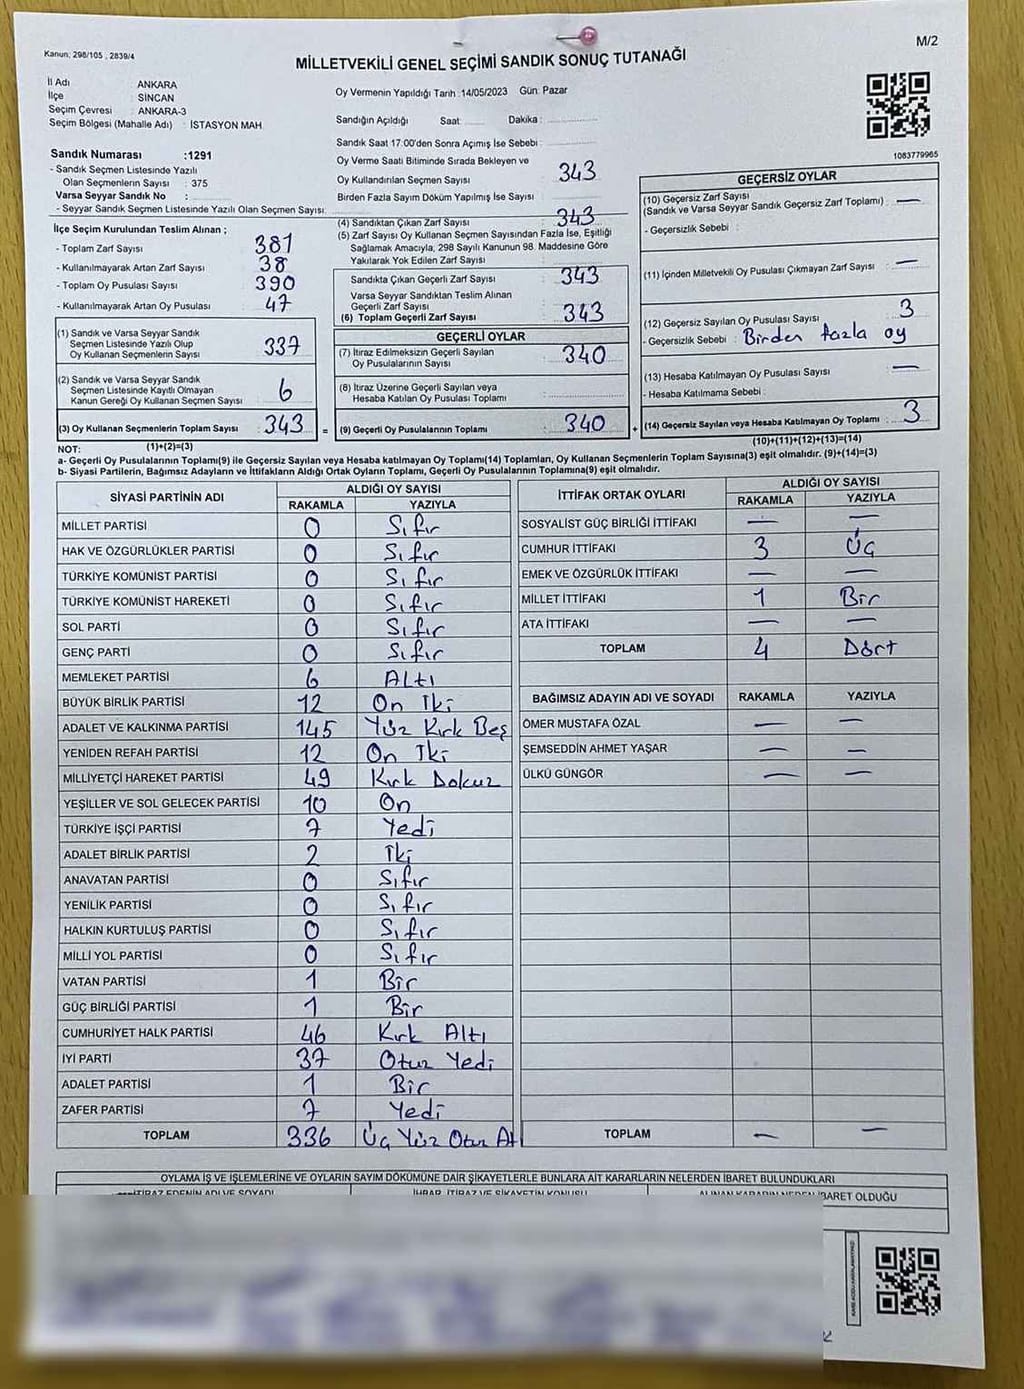 Kanun: 298/105 , 2839/4
M/2
MİLLETVEKİLİ GENEL SEÇİMİ SANDIK SONUÇ TUTANAĞI
İl Adı ANKARA
İlçe SİNCAN
Seçim Çevresi : ANKARA-3
Seçim Bölgesi (Mahalle Adı) : İSTASYON MAH
Oy Vermenin Yapıldığı Tarih :14/05/2023 Gün: Pazar
Sandığın Açıldığı Saat: Dakika :
Sandık Saat 17.00'den Sonra Açımış İse Sebebi :
1083779965
Sandık Numarası :1291
- Sandık Seçmen Listesinde Yazılı
Olan Seçmenlerin Sayısı : 375
Varsa Seyyar Sandık No :
- Seyyar Sandık Seçmen Listesinde Yazılı Olan Seçmen Sayısı:
Oy Verme Saati Bitiminde Sırada Bekleyen ve
Oy Kullandırılan Seçmen Sayısı : 343
Birden Fazla Sayım Döküm Yapılmış İse Sayısı :
İlçe Seçim Kurulundan Teslim Alınan ;
- Toplam Zarf Sayısı : 381
- Kullanılmayarak Artan Zarf Sayısı : 38
- Toplam Oy Pusulası Sayısı : 390
- Kullanılmayarak Artan Oy Pusulası : 47
(1) Sandık ve Varsa Seyyar Sandık
Seçmen Listesinde Yazılı Olup
Oy Kullanan Seçmenlerin Sayısı : 337
(2) Sandık ve Varsa Seyyar Sandık
Seçmen Listesinde Kayıtlı Olmayan
Kanun Gereği Oy Kullanan Seçmen Sayısı : 6
(3) Oy Kullanan Seçmenlerin Toplam Sayısı : 343 =
(4) Sandıktan Çıkan Zarf Sayısı : 343
(5) Zarf Sayısı Oy Kullanan Seçmen Sayısından Fazla İse, Eşitliği
Sağlamak Amacıyla, 298 Sayılı Kanunun 98. Maddesine Göre
Yakılarak Yok Edilen Zarf Sayısı :
Sandıkta Çıkan Geçerli Zarf Sayısı : 343
Varsa Seyyar Sandıktan Teslim Alınan
Geçerli Zarf Sayısı :
(6) Toplam Geçerli Zarf Sayısı : 343
GEÇERLİ OYLAR
(7) İtiraz Edilmeksizin Geçerli Sayılan
Oy Pusulalarının Sayısı : 340
(8) İtiraz Üzerine Geçerli Sayılan veya
Hesaba Katılan Oy Pusulası Toplamı :
(9) Geçerli Oy Pusulalarının Toplamı : 340 +
GEÇERSİZ OYLAR
(10) Geçersiz Zarf Sayısı
(Sandık ve Varsa Seyyar Sandık Geçersiz Zarf Toplamı) : —
- Geçersizlik Sebebi :
(11) İçinden Milletvekili Oy Pusulası Çıkmayan Zarf Sayısı : —
(12) Geçersiz Sayılan Oy Pusulası Sayısı : 3
- Geçersizlik Sebebi : Birden fazla oy
(13) Hesaba Katılmayan Oy Pusulası Sayısı : —
- Hesaba Katılmama Sebebi :
(14) Geçersiz Sayılan veya Hesaba Katılmayan Oy Toplamı : 3
NOT: (1)+(2)=(3) (10)+(11)+(12)+(13)=(14)
a- Geçerli Oy Pusulalarının Toplamı(9) ile Geçersiz Sayılan veya Hesaba katılmayan Oy Toplamı(14) Toplamları, Oy Kullanan Seçmenlerin Toplam Sayısına(3) eşit olmalıdır. (9)+(14)=(3)
b- Siyasi Partilerin, Bağımsız Adayların ve İttifakların Aldığı Ortak Oyların Toplamı, Geçerli Oy Pusulalarının Toplamına(9) eşit olmalıdır.
SİYASİ PARTİNİN ADI ALDIĞI OY SAYISI
RAKAMLA YAZIYLA
MİLLET PARTİSİ 0 Sıfır
HAK VE ÖZGÜRLÜKLER PARTİSİ 0 Sıfır
TÜRKİYE KOMÜNİST PARTİSİ 0 Sıfır
TÜRKİYE KOMÜNİST HAREKETİ 0 Sıfır
SOL PARTİ 0 Sıfır
GENÇ PARTİ 0 Sıfır
MEMLEKET PARTİSİ 6 ALTI
BÜYÜK BİRLİK PARTİSİ 12 On İki
ADALET VE KALKINMA PARTİSİ 145 Yüz Kırk Beş
YENİDEN REFAH PARTİSİ 12 On İki
MİLLİYETÇİ HAREKET PARTİSİ 49 Kırk Dokuz
YEŞİLLER VE SOL GELECEK PARTİSİ 10 On
TÜRKİYE İŞÇİ PARTİSİ 7 Yedi
ADALET BİRLİK PARTİSİ 2 İki
ANAVATAN PARTİSİ 0 Sıfır
YENİLİK PARTİSİ 0 Sıfır
HALKIN KURTULUŞ PARTİSİ 0 Sıfır
MİLLİ YOL PARTİSİ 0 Sıfır
VATAN PARTİSİ 1 Bir
GÜÇ BİRLİĞİ PARTİSİ 1 Bir
CUMHURİYET HALK PARTİSİ 46 Kırk Altı
İYİ PARTİ 37 Otuz Yedi
ADALET PARTİSİ 1 Bir
ZAFER PARTİSİ 7 Yedi
TOPLAM 336 Üç Yüz Otuz Al
İTTİFAK ORTAK OYLARI ALDIĞI OY SAYISI
RAKAMLA YAZIYLA
SOSYALİST GÜÇ BİRLİĞİ İTTİFAKI — —
CUMHUR İTTİFAKI 3 Üç
EMEK VE ÖZGÜRLÜK İTTİFAKI — —
MİLLET İTTİFAKI 1 Bir
ATA İTTİFAKI — —
TOPLAM 4 Dört
BAĞIMSIZ ADAYIN ADI VE SOYADI RAKAMLA YAZIYLA
ÖMER MUSTAFA ÖZAL — —
ŞEMSEDDİN AHMET YAŞAR — —
ÜLKÜ GÜNGÖR — —
TOPLAM — —
OYLAMA İŞ VE İŞLEMLERİNE VE OYLARIN SAYIM DÖKÜMÜNE DAİR ŞİKAYETLERLE BUNLARA AİT KARARLARIN NELERDEN İBARET BULUNDUKLARI
İTİRAZ EDENİN ADI VE SOYADI İHBAR, İTİRAZ VE ŞİKAYETİN KONUSU ALINAN KARARIN NEDEN İBARET OLDUĞU